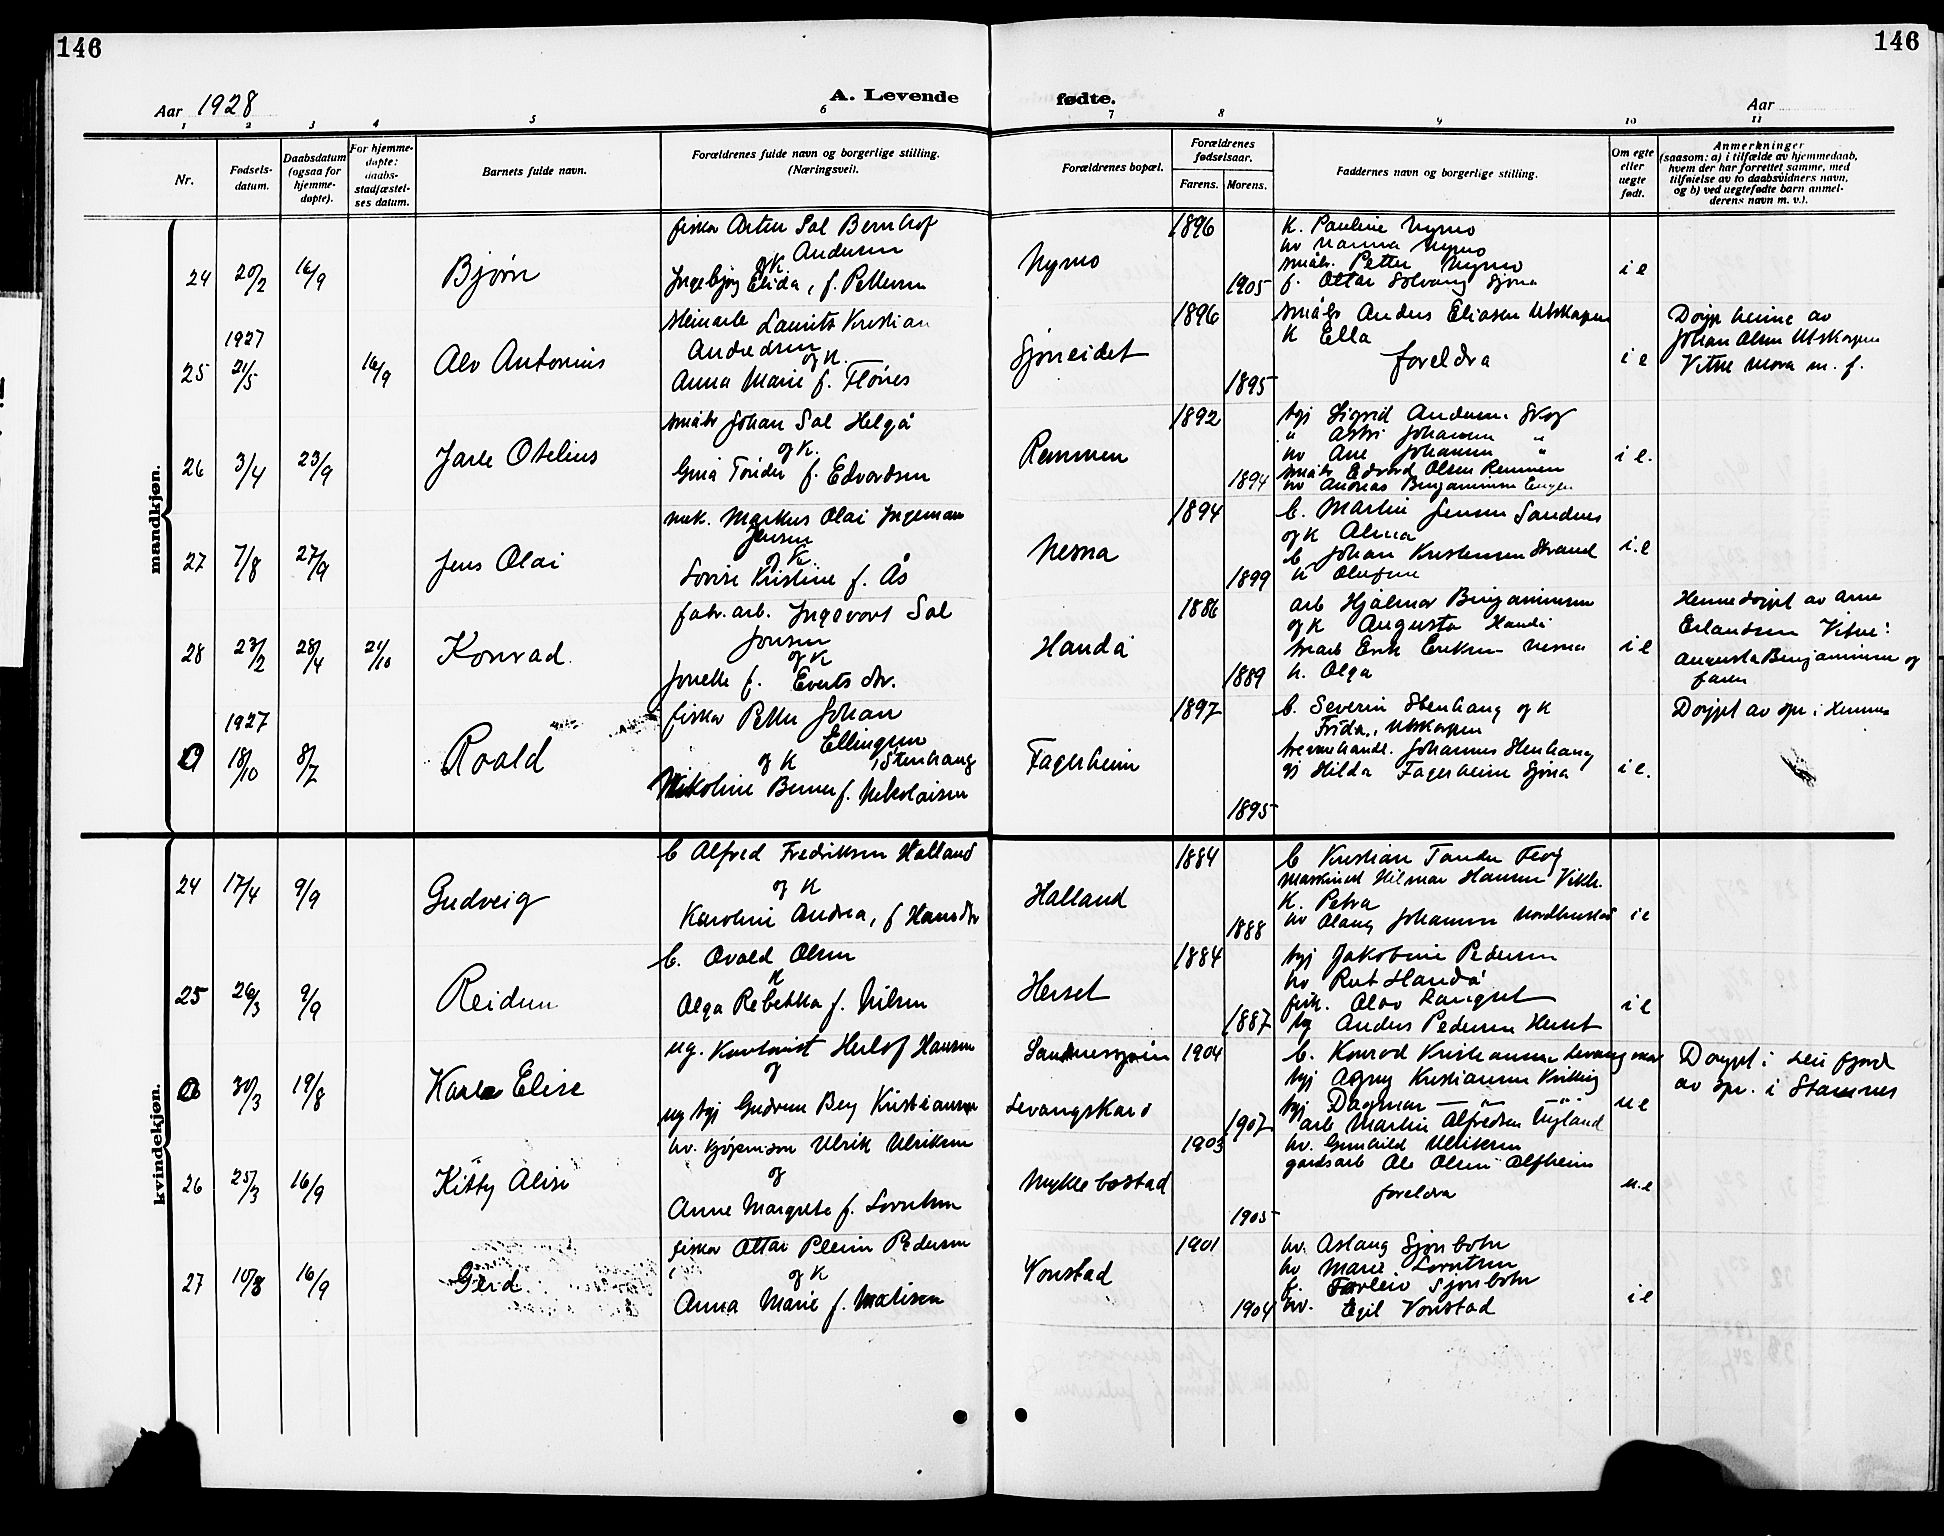 146
146
Aar 1928
A. Levende
fødte.
Aar
1 2 3 4 5 6 7 8 9 10 11
Nr.
Fødsels-
datum.
Daabsdatum
(ogsaa for
hjemme-
døpte).
For hjemme-
døpte:
daabs-
stadfæstel-
ses datum.
Barnets fulde navn.
Forældrenes fulde navn og borgerlige stilling.
(Næringsvei).
Forældrenes bopæl.
Forældrenes
fødselsaar.
Farens. Morens.
Faddernes navn og borgerlige stilling.
Om egte
eller
uegte
født.
Anmerkninger
(saasom: a) i tilfælde av hjemmedaab,
hvem der har forrettet samme, med
tilføielse av to daabsvidners navn,
og b) ved uegtefødte barn anmel-
derens navn m. v.).
mandkjøn.
24 20/2 16/9 Bjørn
fisker Artur Sal Bernhof
Andersen
og K
Ingebjørg Elida, f. Pettersen
Nymo
1896
1905
K. Pauline Nymo
hv Nanna Nymo
småbr. Petter Nymo
f. Ottar Solvang Sjona
i e
25 1927
21/5 16/9 Alv Antonius
Laurits Kristian
Andersen
og K.
Anna Marie f. Flønes
Sjoneidet
1896
1895
småbr Anders Eliasen Utskarpen
K Ella
foreldra
i e
Døypt heime av
Johan Olsen Utskarpen
Vitne Mora m. f.
26 3/4 23/9 Jarle Otelius
småbr Johan Sal Helgå
og K.
Gina Tonder f. Edvardsen
Remmen
1892
1894
tyj Sigrid Andersen Skog
" Astri Johansen "
hv Ane Johansen "
småbr Edvard Olsen Remmen
hv Andreas Benjaminsen
i e.
27 7/8 27/9 Jens Olai
mek. Markus Olai Ingeman
Jensen
og K.
Lovise Kristine f. Ås
Nesna
1894
1899
b. Martin Jensen Sandnes
og K Alma
b Johan Kristensen Strand
K Olufine
i.e
28 23/2 28/4 21/10 Konrad.
fabr. arb. Ingevart Sal
Jonsen
og K
f. Evertsdtr.
Handå
1886
1889
arb Hjalmar Benjaminsen
og K Augusta Handå
Erik Eriksen Nesna
K. Olga
i e
Heimedøypt av Arne
Erlandsen Vitne:
Augusta Benjaminsen og
faren
1927
18/10 8/7 Roald
fisker Petter Johan
Ellingsen
og K , Stenhaug
Nikoline Berner f. Nikolaisen
Fagerheim
1897
1895
b. Severin Stenhaug og K
Frida, Utskarpen
trevarehandl. Johannes Stenhaug
gj Hilda Fagerheim Sjona
i e.
Døypt av spr. i Hemnes
kvindekjøn.
24 17/4 9/9 Gudveig
b Alfred Fredriksen Halland
og K
Karoline Andrea, f Hansdtr
Halland
1884
1888
b Kristian Tander
maskinist Hilmar Hansen Vikh.
K. Petra
hv Olaug Johansen
i e
25 26/3 9/9 Reidun
b. Ovald Olsen
K
Olga Rebekka f. Nilsen
Herset
1884
1887
tyj Jakobine Pedersen
hv Rut Handå
fisk. Olav Langset
tg Anders Pedersen Herset
i e
30/3 19/8 Karle Elise
ug. Kontorist Herlof Hansen
og
ug tyj Gudrun Bey Kristiansen
Levangskard
1904
1907
b. Konrad Kristiansen
tyj Agny Kristiansen
tyj Dagmar — " —
arb Martin Alfredsen
u e
Døypt i Leirfjord
av spr. i Stamnes
26 25/3 16/9 Kitty Alise
hv. kjøpmann Ulrik Ulriksen
og
Anne Margrete f. Lorntsen
Myklebostad
1903
1905
hv. Gunhild Ulriksen
gardsarb Ole Olsen Alfheim
foreldra
u. e
27 10/8 16/9 Gerd
fisker Ottar Pleim Pedersen
og K
Anna Marie f. Matisen
Vonstad
1901
1904
hv. Aslaug Sjonbotn
hv Marie Lorntsen
f. Torleiv Sjonbotn
hv. Egil Vonstad
i e